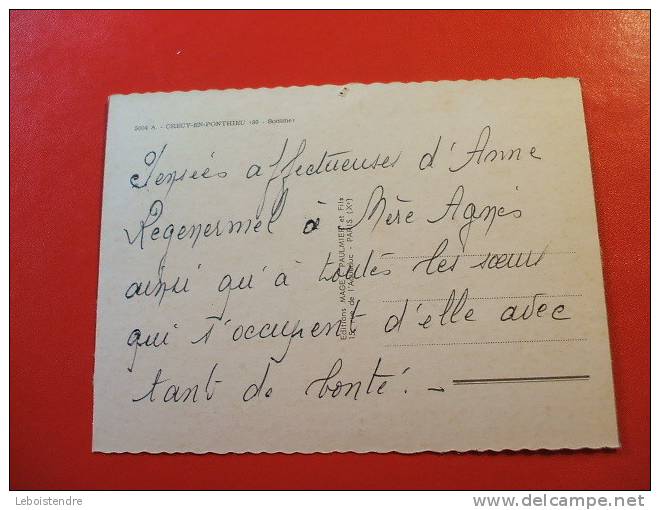 5004 A. - CRECY-EN-PONTHIEU (80 - Somme)
Pensées affectueuses d'Anne
Regenermel à Mère Agnès
ainsi qu'à toutes les sœurs
qui s'occupent d'elle avec
tant de bonté. -
Editions MAGE PAULMIER et Fils
rue de l'Aqueduc - PARIS (Xe)
Leboistendre
www.delcampe.net